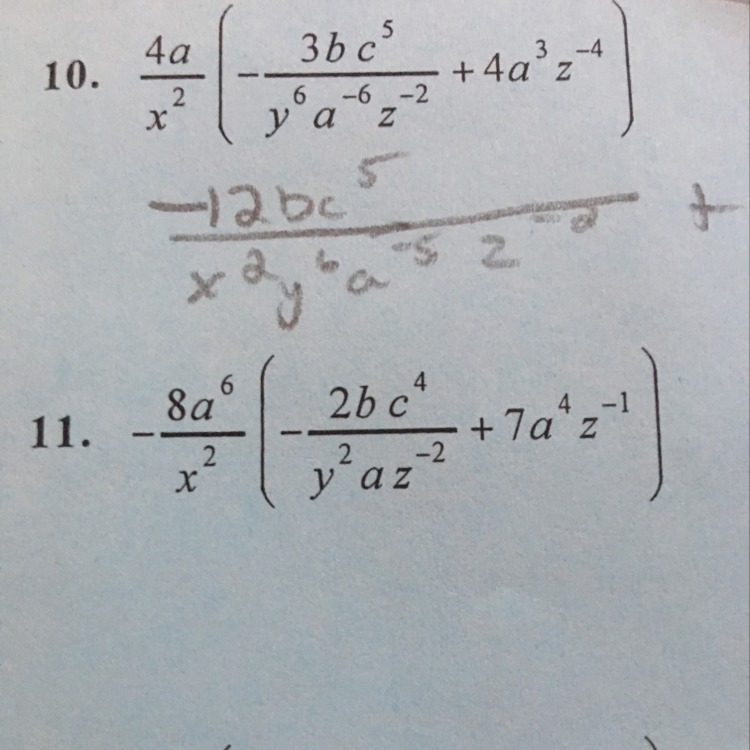 10. \frac{4a}{x^2} \left( -\frac{3bc^5}{y^6 a^{-6} z^{-2}} + 4a^3 z^{-4} \right)
\frac{-12bc^5}{x^2 y^6 a^{-5} z^{-2}} +
11. -\frac{8a^6}{x^2} \left( -\frac{2bc^4}{y^2 a z^{-2}} + 7a^4 z^{-1} \right)